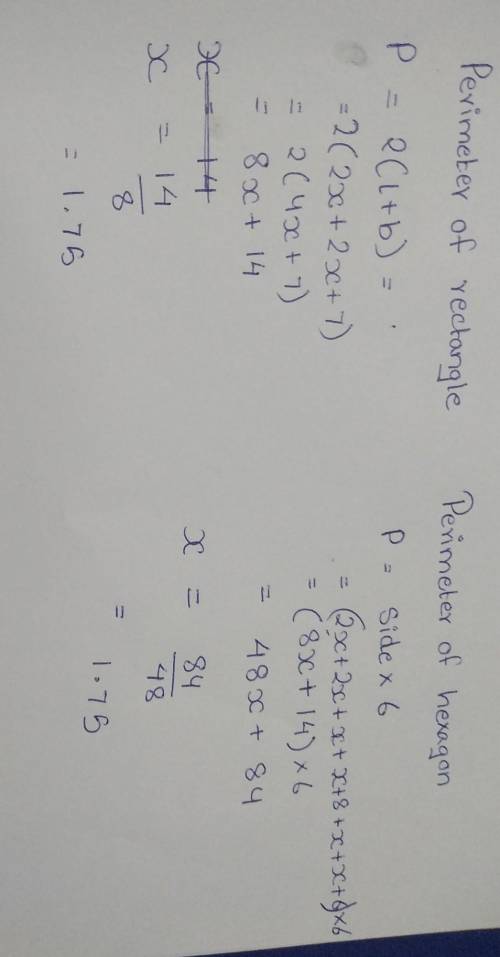 Perimeter of rectangle
P = 2(l+b) = .
= 2(2x+2x+7)
= 2(4x+7)
= 8x+14
x = 14
x = 14/8
= 1.75
Perimeter of hexagon
P = side × 6
= (2x+2x+x+x+8+x+x+6)×6
= (8x+14)×6
= 48x+84
x = 84/48
= 1.75